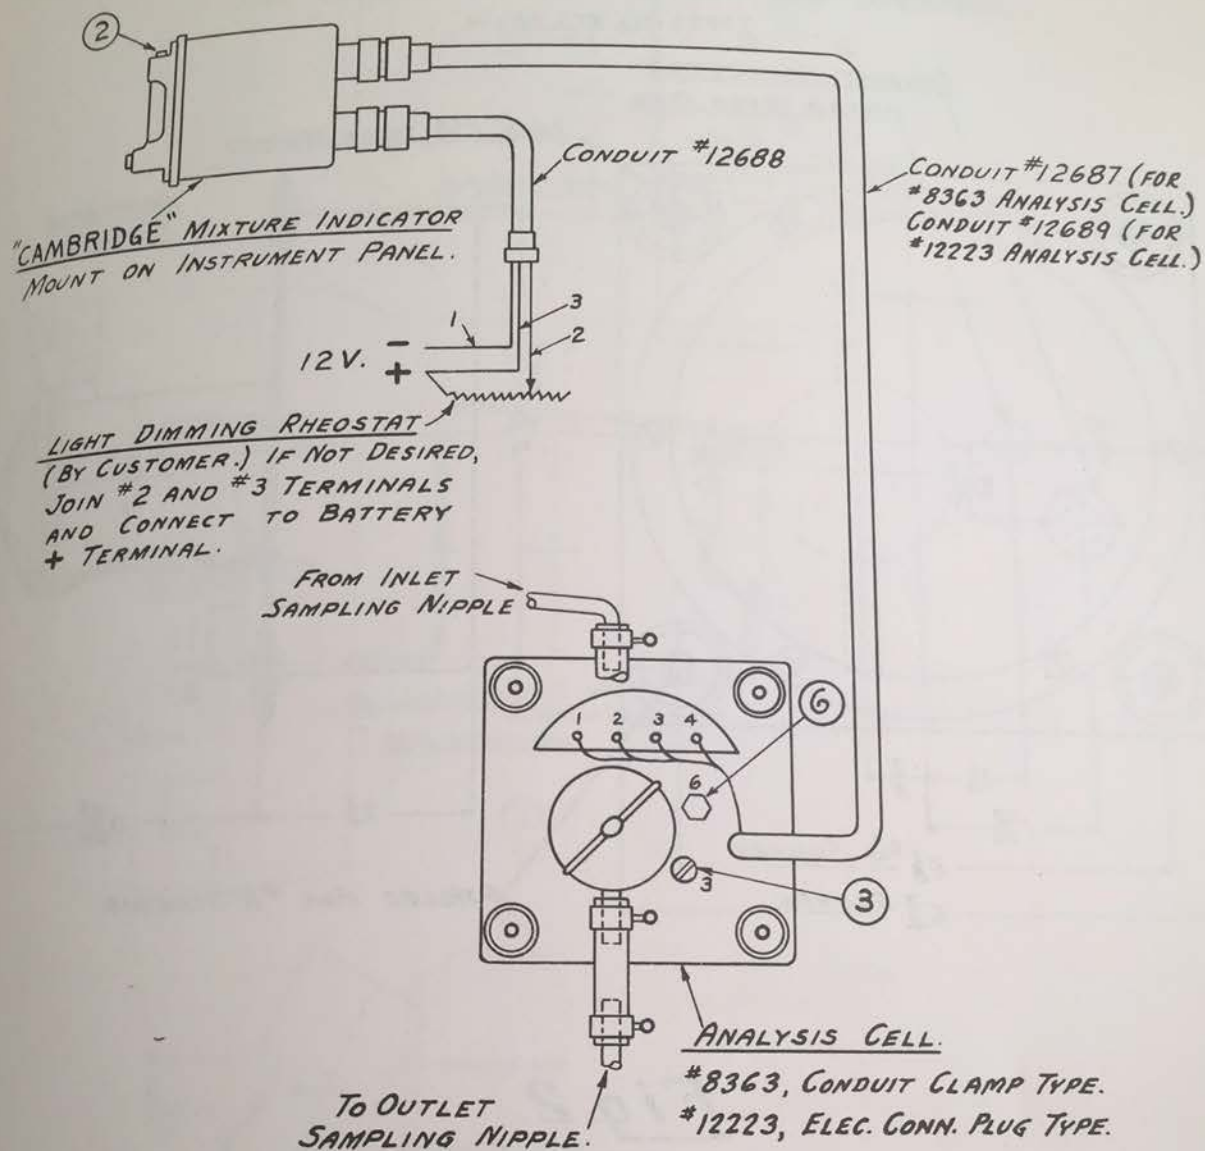 2
CONDUIT #12688
CONDUIT #12687 (FOR
#8363 ANALYSIS CELL.)
CONDUIT #12689 (FOR
#12223 ANALYSIS CELL.)
"CAMBRIDGE" MIXTURE INDICATOR
MOUNT ON INSTRUMENT PANEL.
1
3
2
12V. -
+
LIGHT DIMMING RHEOSTAT
(BY CUSTOMER.) IF NOT DESIRED,
JOIN #2 AND #3 TERMINALS
AND CONNECT TO BATTERY
+ TERMINAL.
FROM INLET
SAMPLING NIPPLE
1 2 3 4
6
6
3
3
ANALYSIS CELL.
#8363, CONDUIT CLAMP TYPE.
#12223, ELEC. CONN. PLUG TYPE.
TO OUTLET
SAMPLING NIPPLE.